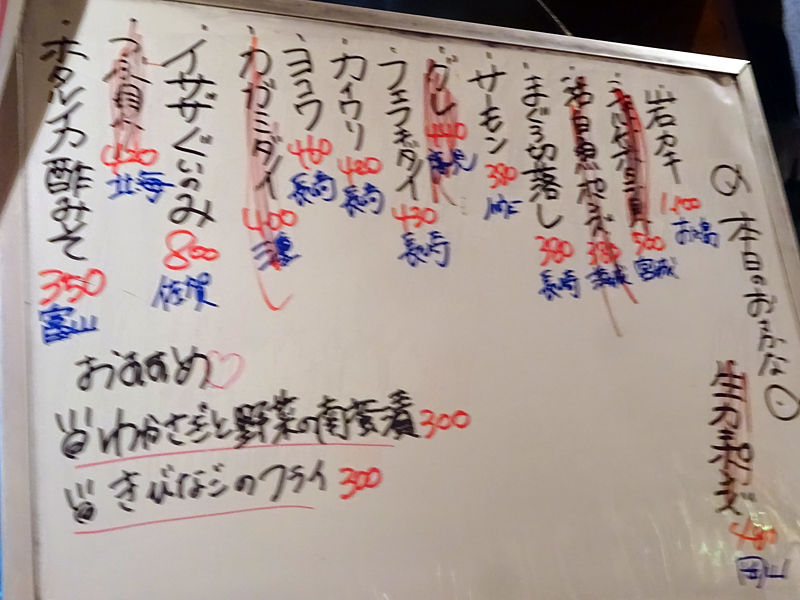 本日のおさかな
生カキポン酢 480 岡山
岩カキ 1,100
500 宮城
活白魚ポン酢 380 茨城
まぐろ切落し 380 長崎
サーモン 380
グレ 440
フエフキダイ 430 長崎
カイワリ 420 長崎
ヨコワ 460 長崎
カガミダイ 400 三重
イサザぐいのみ 800 佐賀
つぶ貝 420 北海
ホタルイカ酢みそ 350 富山
おすすめ♡
わかさぎと野菜の南蛮漬 300
きびなごのフライ 300